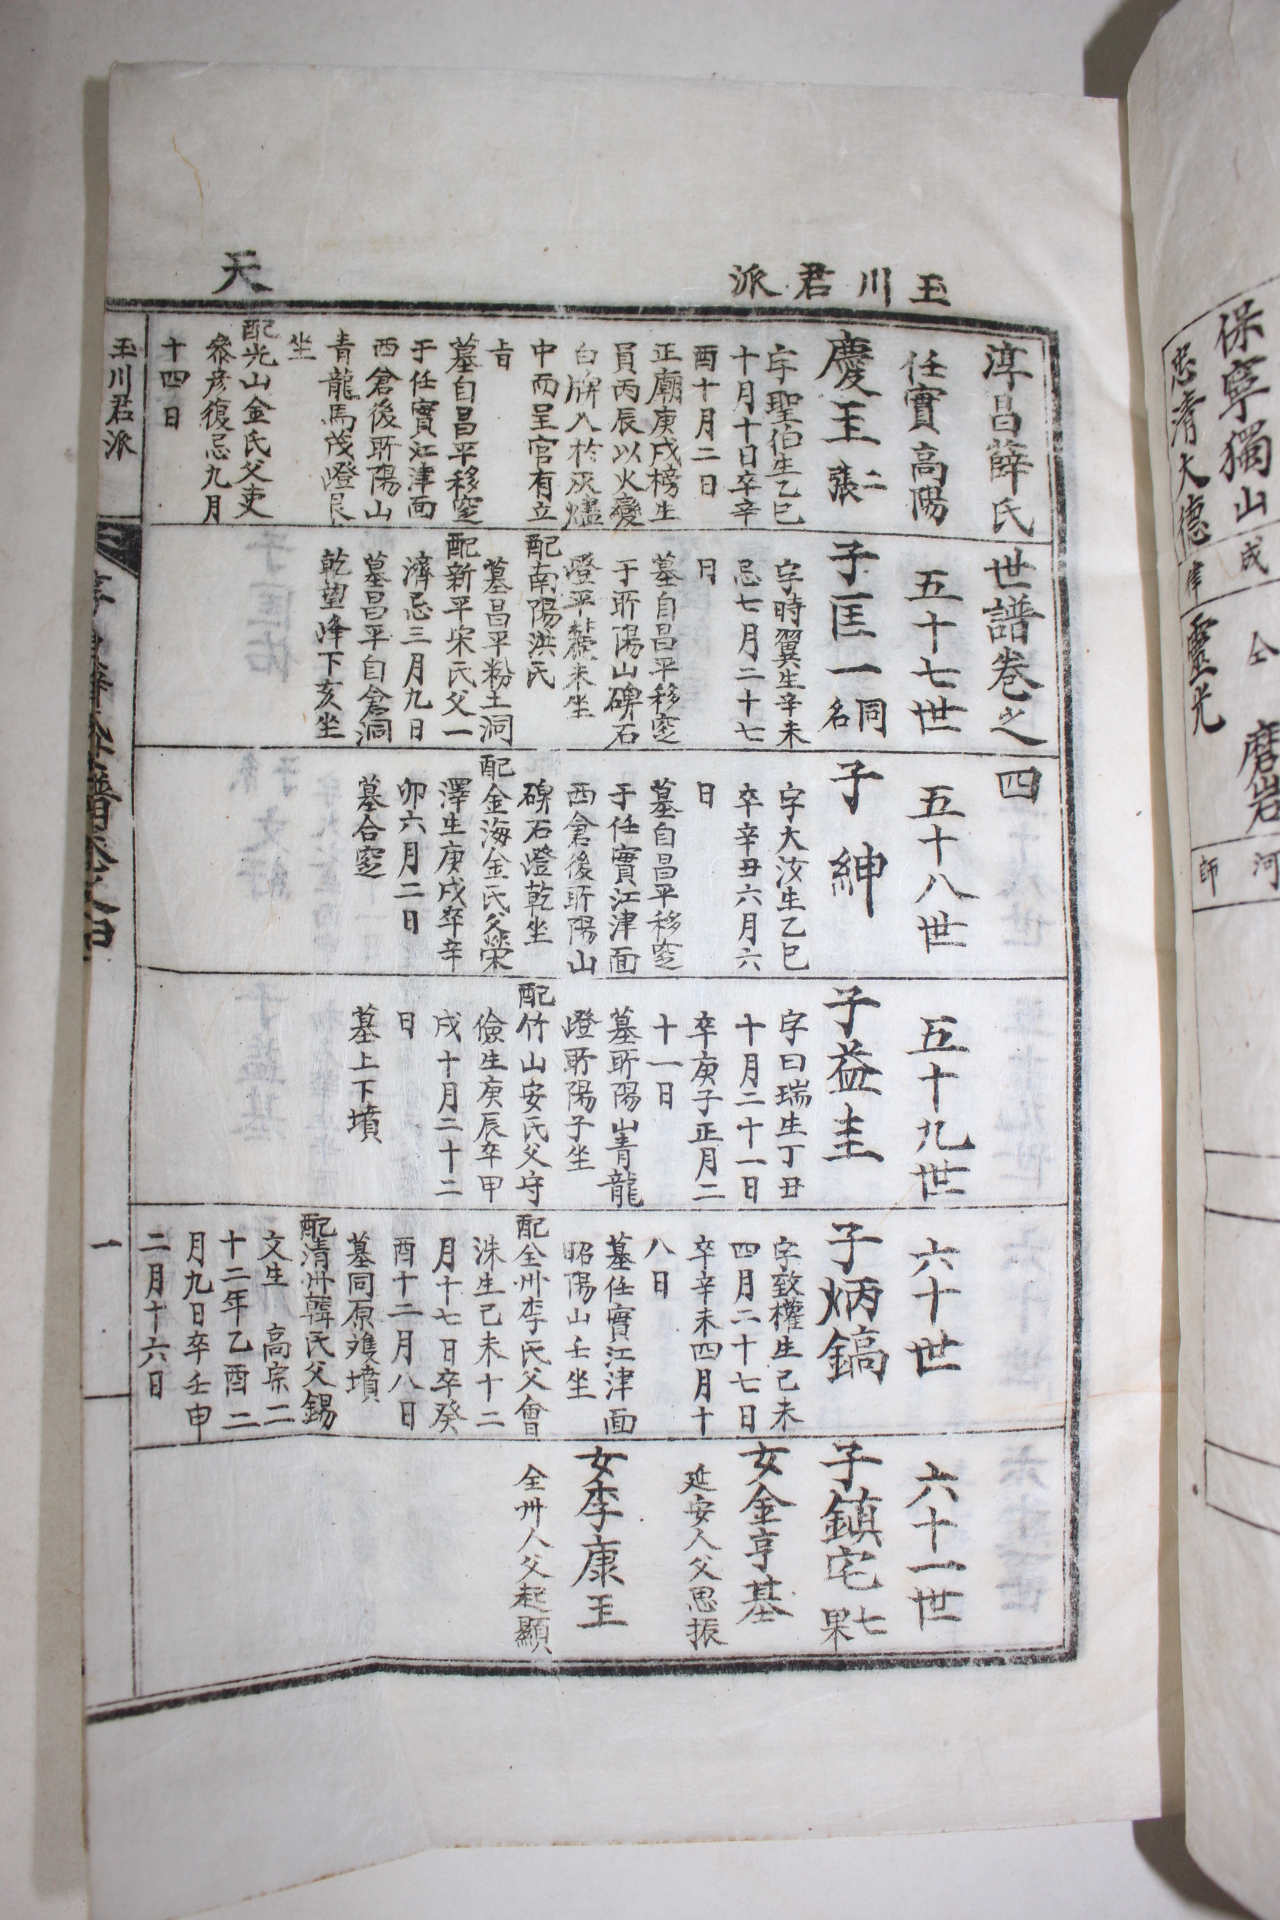 玉川君派
天
淳昌薛氏世譜卷之四
任實高陽
慶王二張
字聖伯生乙巳
十月十日卒辛
酉十月二日
正廟庚戌榜生
員丙辰以火變
白牌入於灰燼
中而呈官有立
旨
墓自昌平移窆
于任實江津面
西倉後昕陽山
青龍馬茂嶝艮
坐
配光山金氏父吏
參彦復忌九月
十四日
五十七世
子匡一同名
字時翼生辛未
忌七月二十七
日
墓自昌平移窆
于昕陽山碑石
嶝平麓未坐
配南陽洪氏
墓昌平粉土洞
配新平宋氏父一
濟忌三月九日
墓昌平自倉洞
乾望峰下亥坐
五十八世
子紳
字大汝生乙巳
卒辛丑六月六
日
墓自昌平移窆
于任實江津面
西倉後昕陽山
碑石嶝乾坐
配金海金氏父榮
澤生庚戌卒辛
卯六月二日
墓合窆
五十九世
子益圭
字曰瑞生丁丑
十月二十一日
卒庚子正月二
十一日
墓昕陽山青龍
嶝昕陽子坐
配竹山安氏父守
儉生庚辰卒甲
戌十月二十二
日
墓上下墳
六十世
子炳鎬
字致權生己未
四月二十七日
卒辛未四月十
八日
墓任實江津面
昭陽山壬坐
配全州李氏父會
洙生己未十二
月十七日卒癸
酉十二月八日
墓同原雙墳
配清州韓氏父錫
文生 高宗二
十二年乙酉二
月九日卒壬申
二月十六日
六十一世
子鎮宅七果
女金亨基
延安人父思振
女李康王
全州人父起顯
玉川君派
一
保寧獨山
忠清大德
律
靈光
成
仝
磨岩
河
師